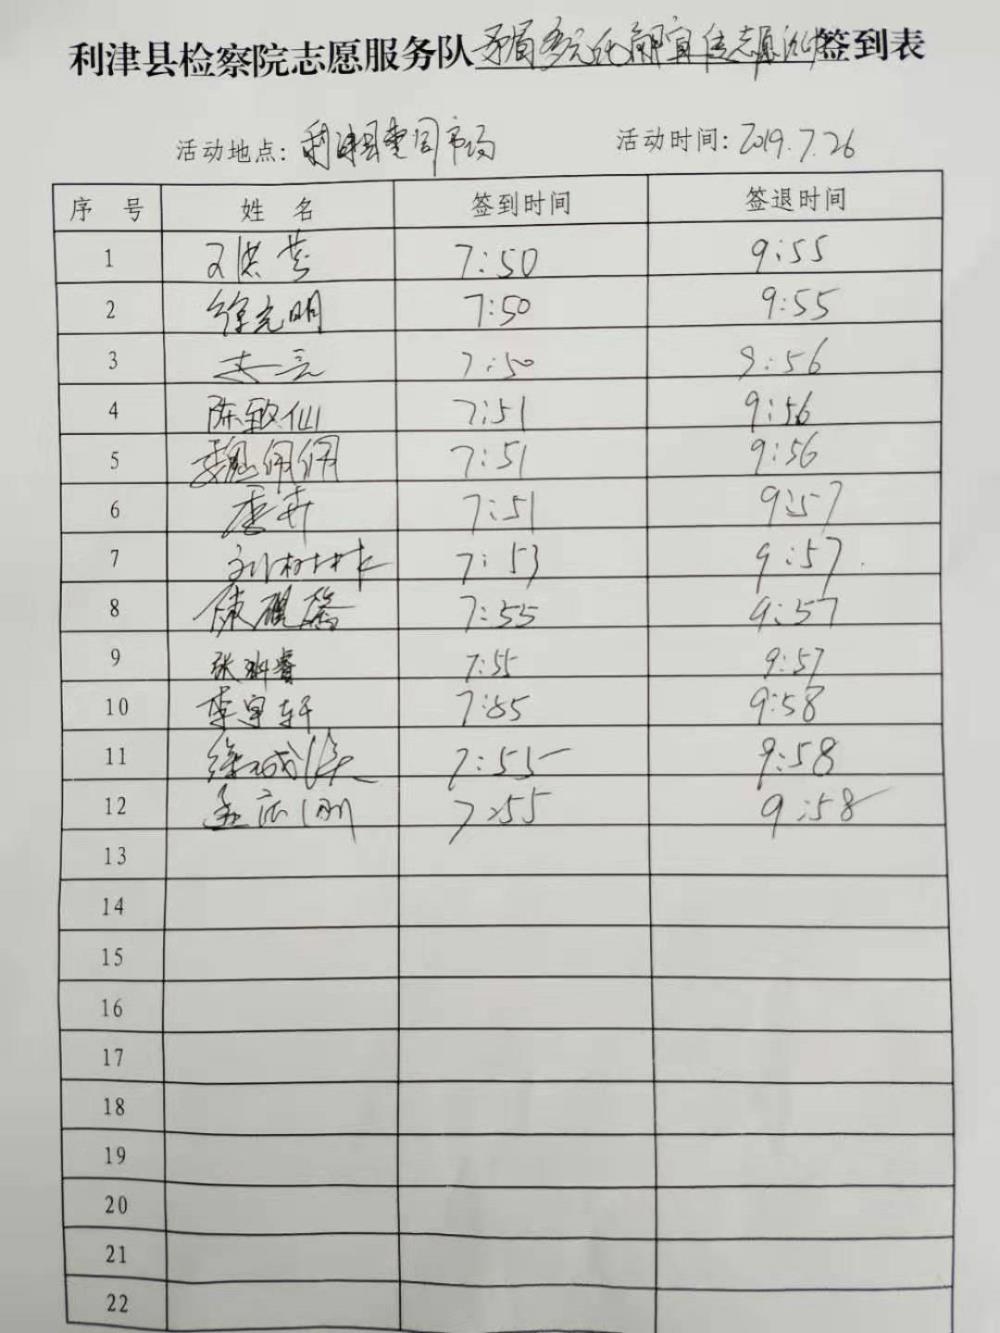 利津县检察院志愿服务队矛盾多元化解宣传志愿活动签到表
活动地点：利津县 市场 活动时间：2019.7.26
序 号 姓 名 签到时间 签退时间
1 7:50 9:55
2 徐光明 7:50 9:55
3 7:50 9:56
4 陈致仙 7:51 9:56
5 魏佩佩 7:51 9:56
6 7:51 9:57
7 刘树林 7:53 9:57
8 7:55 9:57
9 张 睿 7:55 9:57
10 李宇轩 7:55 9:58
11 徐 7:55 9:58
12 孟 刚 7:55 9:58
13
14
15
16
17
18
19
20
21
22